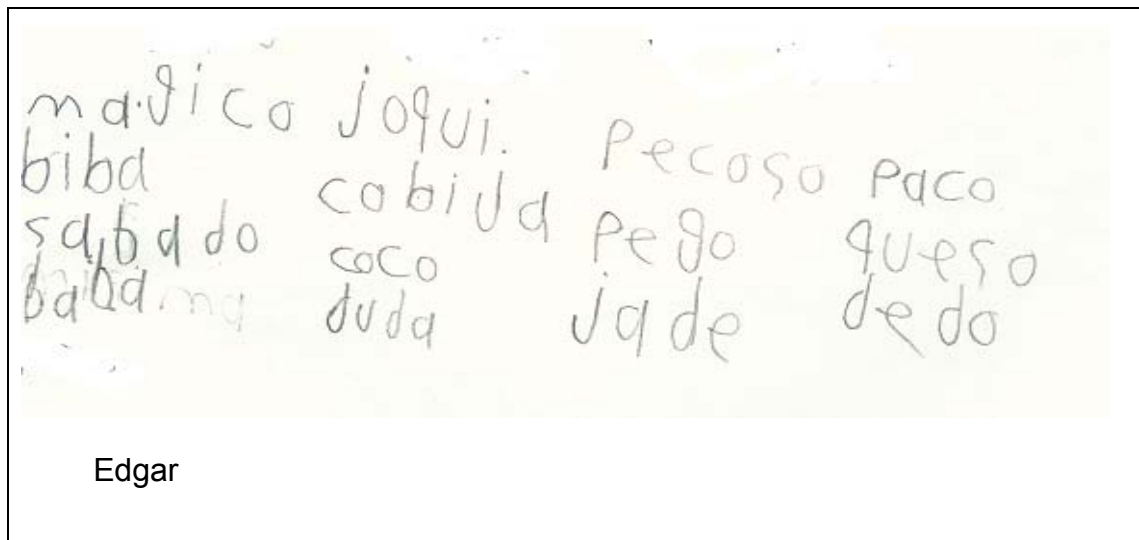 magico joqui. pecoso paco
biba cobida pego queso
sabado coco jade dedo
baba duda
Edgar